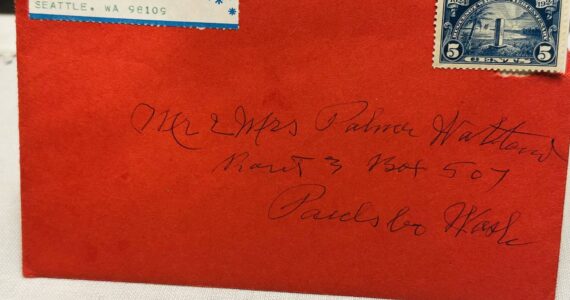 SEATTLE. WA 98109
5 CENTS 5
Mr & Mrs Palmer
Rout 3 Box 507
Poulsbo Wash